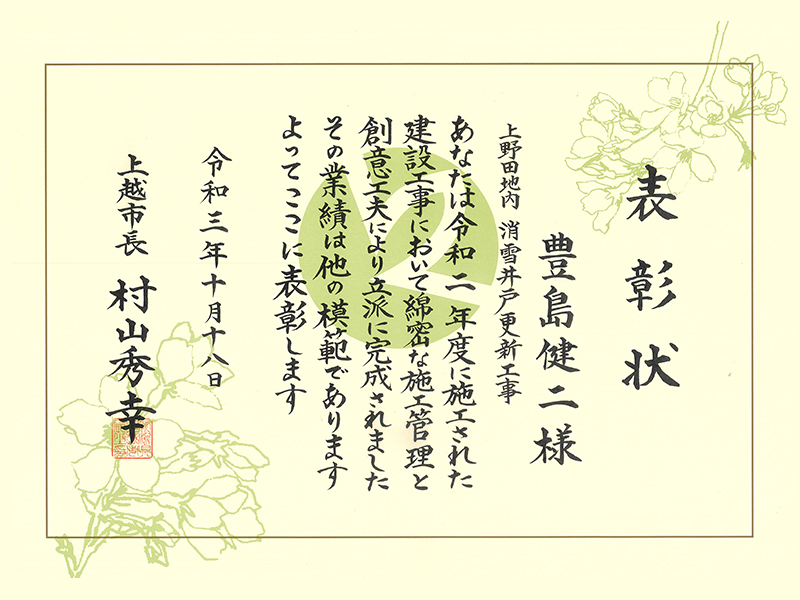 表彰状
豊島健二様
上野田地内 消雪井戸更新工事
あなたは令和二年度に施工された
建設工事において綿密な施工管理と
創意工夫により立派に完成されました
その業績は他の模範であります
よってここに表彰します
令和三年十月十八日
上越市長 村山秀幸